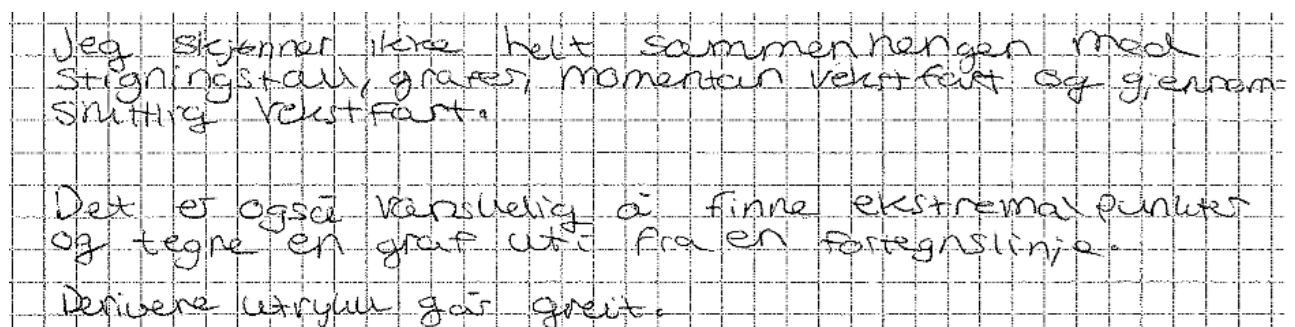 Jeg skjønner ikke helt sammenhengen med
stigningstall, grafer, momentan vekstfart og gjennom-
snittlig vekstfart.
Det er også vanskelig å finne ekstremalpunkter
og tegne en graf uti fra en fortegnslinje.
Derivere utrykk går greit.